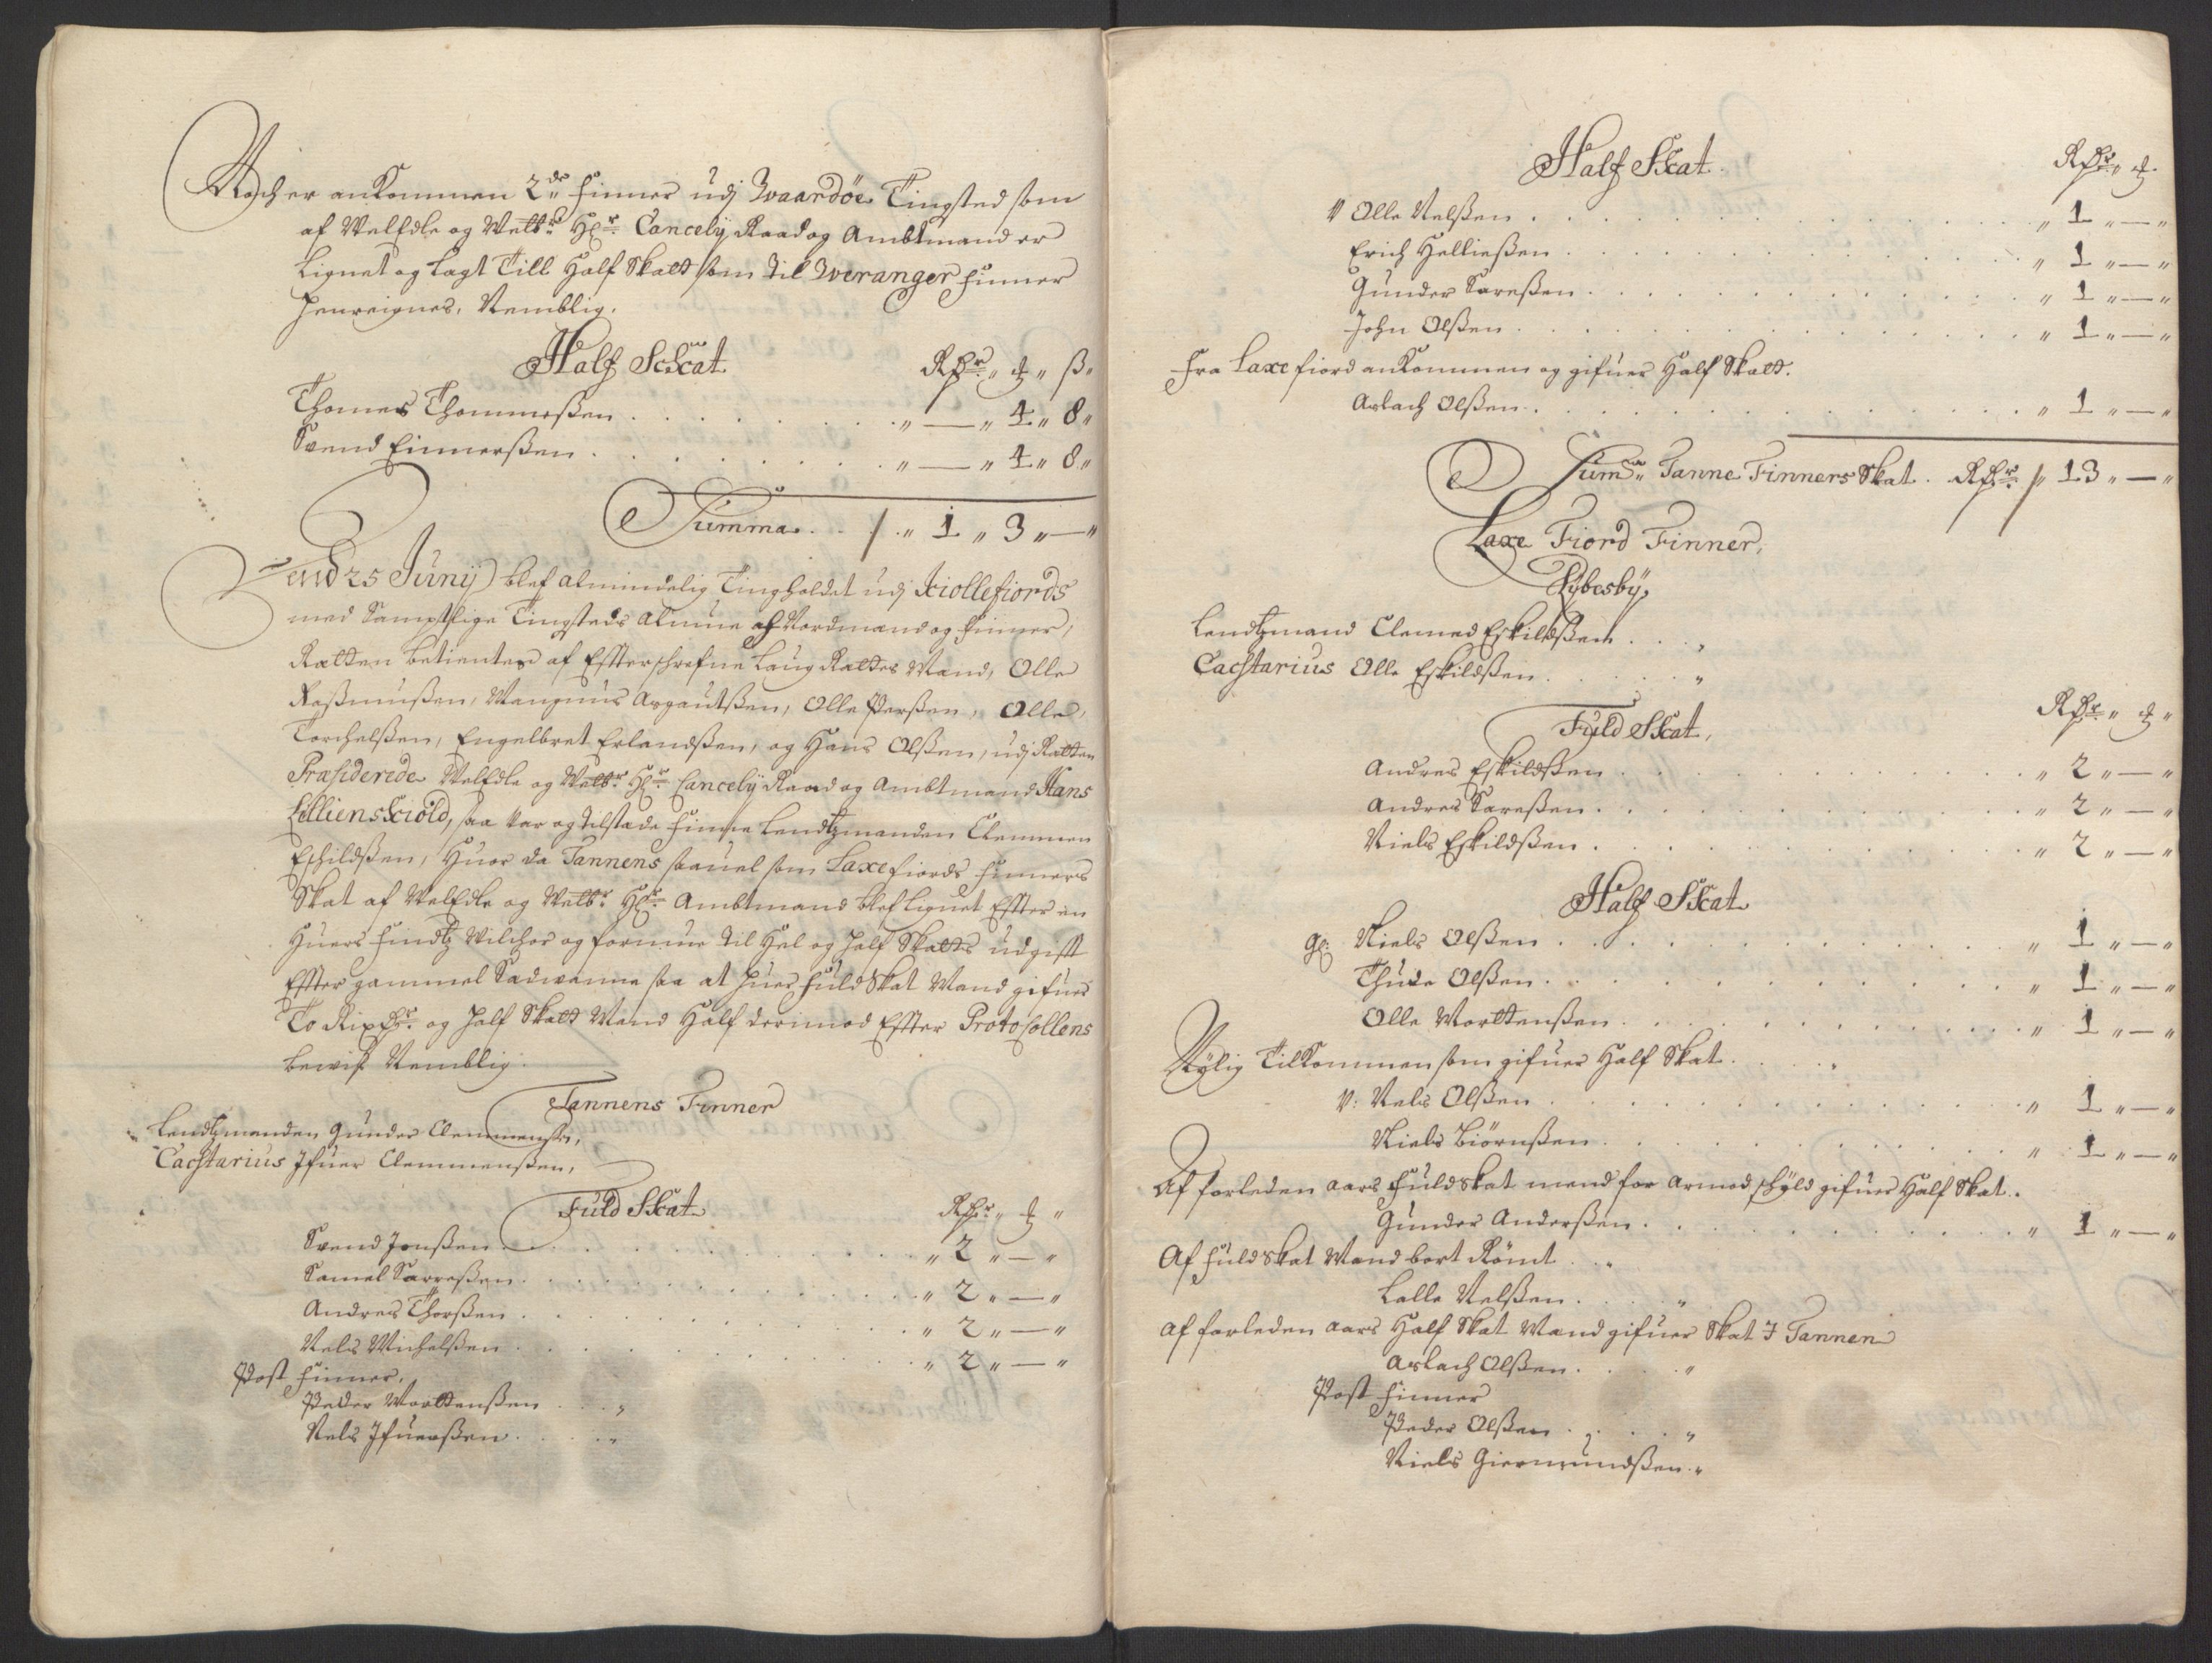 Noch er ankommen 2de finner udj Waardöe Tingsted som
af WelEdle og Welbr Hr Cancely Raad og Ambtmand er
Lignet og Lagt Till Half Skatt som Til Weranger finner
henreignes, Nemblig.
Half Schat Rdr ₰ ß
Thomes Thommesßen . . . . " — " 4 " 8 "
Svend Einnersßen . . . . " — " 4 " 8 "
Summa . . / . " 1 " 3 " — "
Dend 25 Junij blef almindelig Tingholdet udj Kiollefiords
med Samptlige Tingsteds Almue af Nordmand og finner,
Rætten betientes af Effterschrefne Laug Rættes Mand, Olle
Rasmusßen, Mangnus Asgautßen, Olle Persßen, Olle
Torchelsßen, Engelbret Erlandsßen, og Hans Olsßen, udj Rætten
Præsiderede WelEdle og Welbr Hr Cancely Raad og Ambtmand Hans
Lilliensckiöld, saa var og tilstæde finne Lendtzmanden Clemmen
Eskildsßen, Huor da Tannens saauel som Laxefiords finners
Skat af WelEdle og Welbr Hr Ambtmand blef lignet Effter en
huers findtz Vilchor og formue til Hel og half Skatts udgifft
Effter gammel Sædvanne saa at huer fuld Skat Mand gifuer
To Rixdr og half Skatt Mand Half derimod Effter Protocollens
bewiß Nemblig.
Tannens Finner
Lendtzmanden Gunder Clemmensßen,
Cachtarius Ifuer Clemmensßen,
Fuld Skat Rdr " ₰ "
Svend Jonsßen . . . . " 2 " — "
Samel Sarresßen . . . . " 2 " — "
Andres Thorsßen . . . . " 2 " — "
Nels Michelsßen . . . . " 2 " — "
Post finner,
Peder Morttensßen . . "
Nels Ifuersßen . . . "
Half Skat. Rdr " ₰
V Olle Nelsßen . . . . " 1 " — "
Erich Helliesßen . . . . " 1 " — "
Gunder Saresßen . . . . " 1 " — "
John Olsßen . . . . " 1 " — "
Fra Laxefiord ankommen og gifuer Half Skatt.
Aslach Olsßen . . . . " 1 " — "
Summa Tanne Finners Skat . Rdr / " 13 " — "
Laxe Fiord Finner,
Lybesby,
Lendtzmand Clemed Eskildsßen . . . "
Cachtarius Olle Eskildsßen . . . "
Fuld Skat, Rdr " ₰ "
Andres Eskildsßen . . . . " 2 " — "
Andres Saresßen . . . . " 2 " — "
Niels Eskildsßen . . . . " 2 " — "
Half Skat
gl: Niels Olsßen . . . . " 1 " — "
Thude Olsßen . . . . " 1 " — "
Olle Morttensßen . . . . " 1 " — "
Nylig Tilkommen som gifuer Half Skat . . . "
V: Nels Olsßen . . . . " 1 " — "
Niels Biörnsßen . . . . " 1 " — "
Af forleden aars fuld Skat mend for armod schyld gifuer Half Skat.
Gunder Andersßen . . . . " 1 " — "
Af fuld Skat Mand bort Römt . . "
Lalle Nelsßen . . . "
Af forleden aars Half Skat Mand gifuer Skat I Tannen
Aslach Olsßen . . . "
Post finner
Peder Olsßen . . . . "
Niels Giermundsßen . "